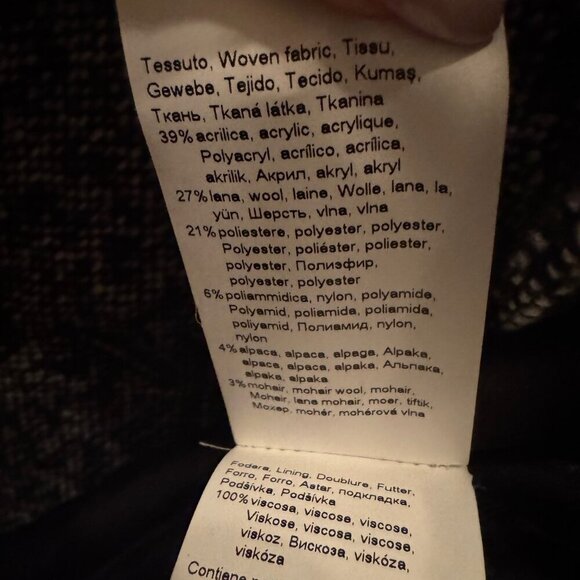 Tessuto, Woven fabric, Tissu,
Gewebe, Tejido, Tecido, Kumaş,
Ткань, Tkaná látka, Tkanina
39% acrilica, acrylic, acrylique,
Polyacryl, acrílico, acrílica,
akrilik, Акрил, akryl, akryl
27% lana, wool, laine, Wolle, lana, la,
yün, Шерсть, vlna, vlna
21% poliestere, polyester, polyester,
Polyester, poliéster, poliester,
polyester, Полиэфир,
polyester, polyester
6% poliammidica, nylon, polyamide,
Polyamid, poliamida, poliamida,
poliyamid, Полиамид, nylon,
nylon
4% alpaca, alpaca, alpaga, Alpaka,
alpaca, alpaca, alpaka, Альпака,
alpaka, alpaka
3% mohair, mohair wool, mohair,
Mohair, lana mohair, moer, tiftik,
Мохер, mohér, mohérová vlna
Fodera, Lining, Doublure, Futter,
Forro, Forro, Astar, подкладка,
Podšívka, Podšívka
100% viscosa, viscose, viscose,
Viskose, viscosa, viscose,
viskoz, Вискоза, viskóza,
viskóza
Contiene